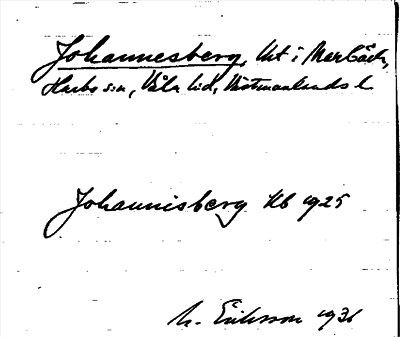 Johannesberg, lht i Marbäck,
Harbo sn, Våla hd, Västmanlands l
Johannisberg Kb 1925
M. Eriksson 1936